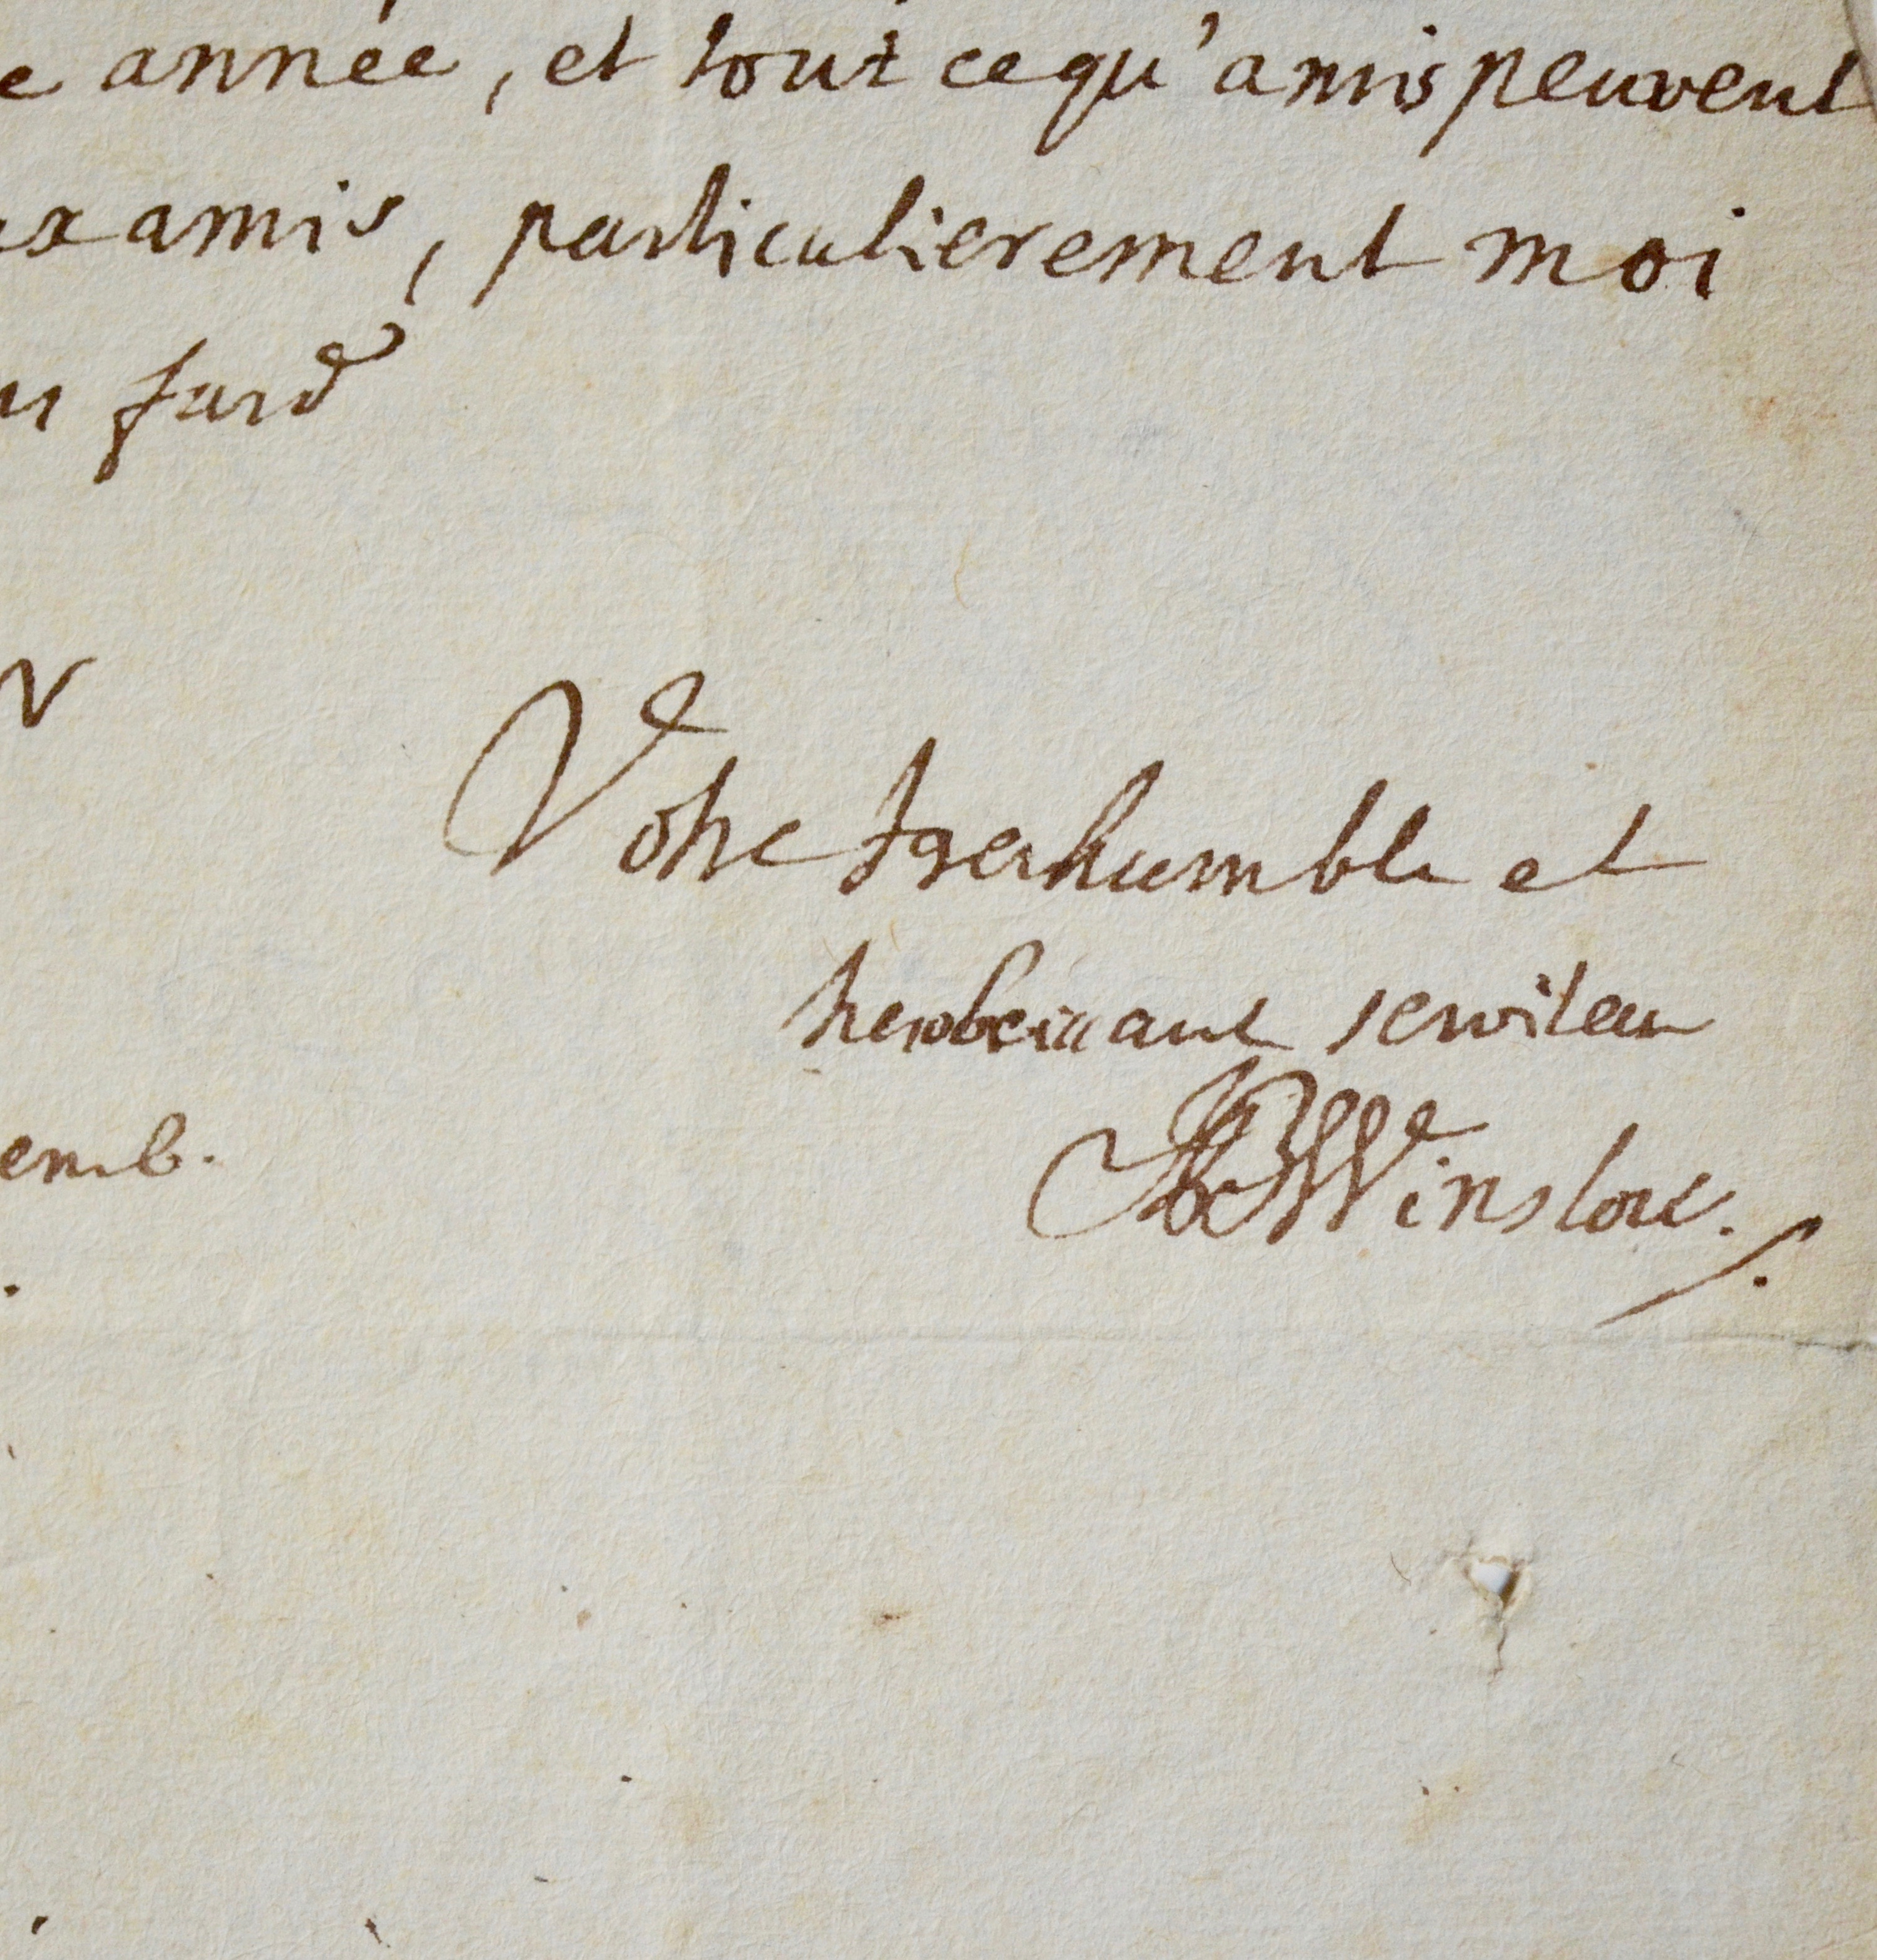 e année, et tout ce qu'amis peuvent
ux amis, particulierement moi
fard
Votre treshumble et
tresobeissant serviteur
Winslow.
emb.